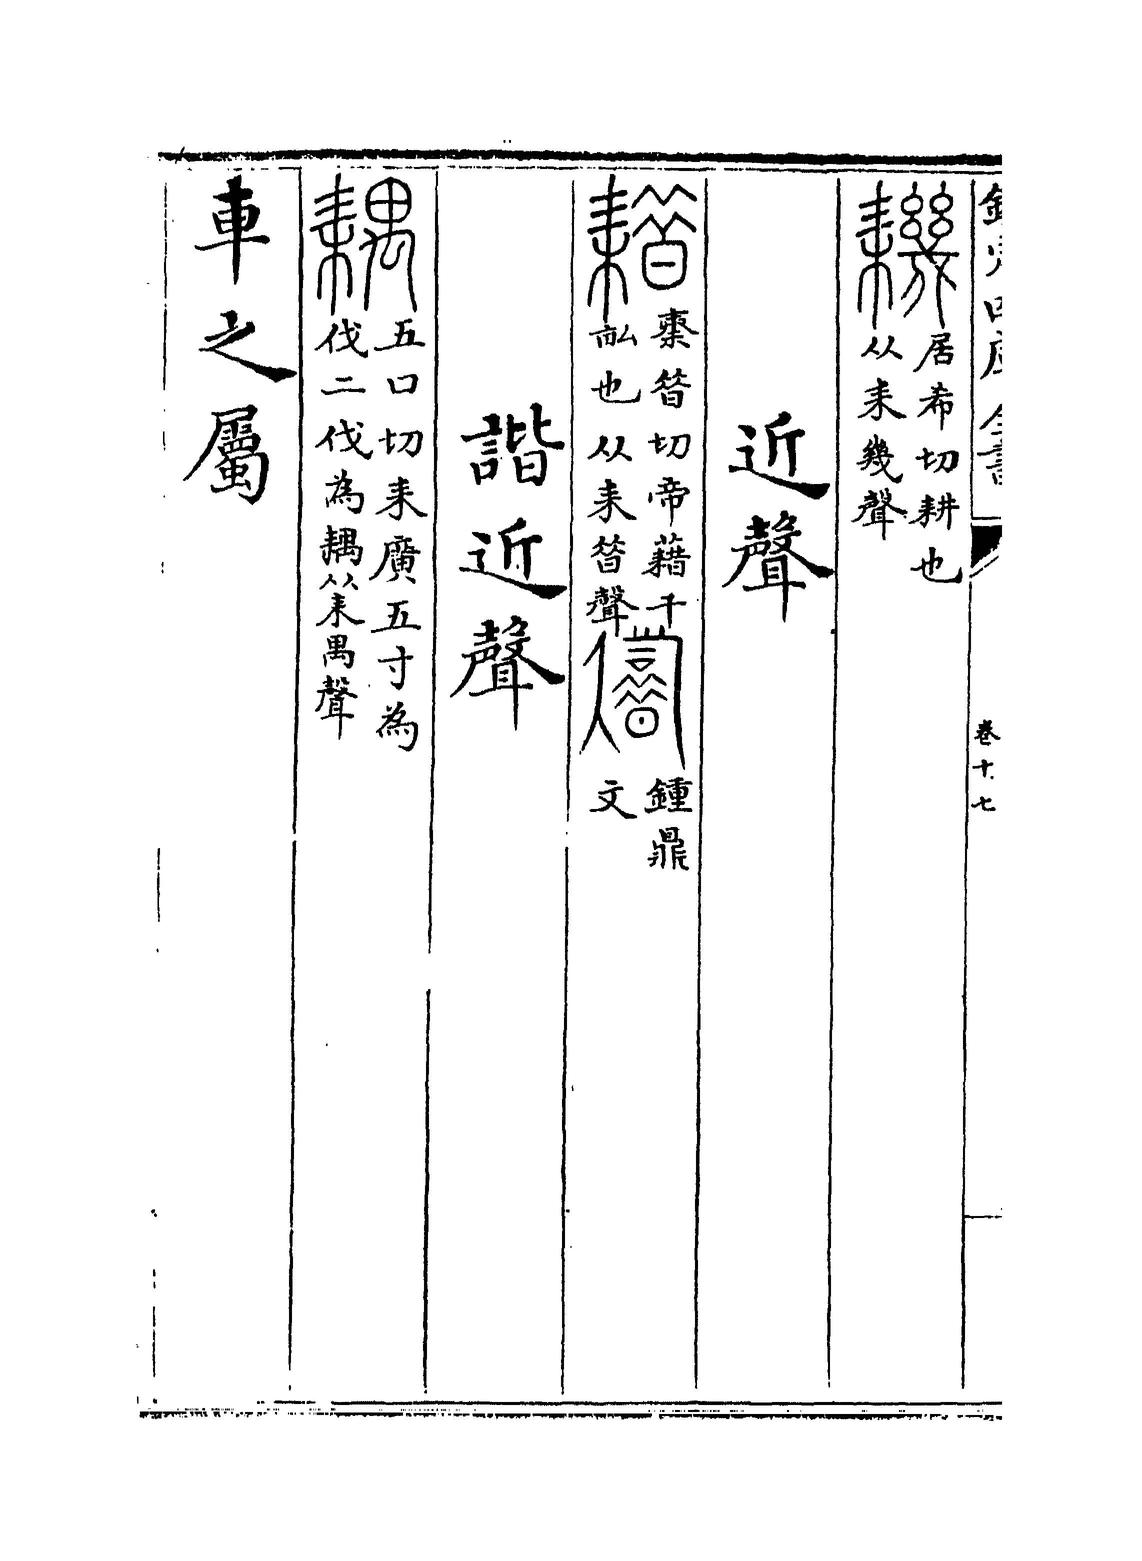 欽定四庫全書
卷十七
𦓝居希切耕也
从耒幾聲
近聲
耤棗㫺切帝藉千
畝也从耒㫺聲
鍾鼎
文
諧近聲
耦五口切耒廣五寸為
伐二伐為耦从耒禺聲
車之屬